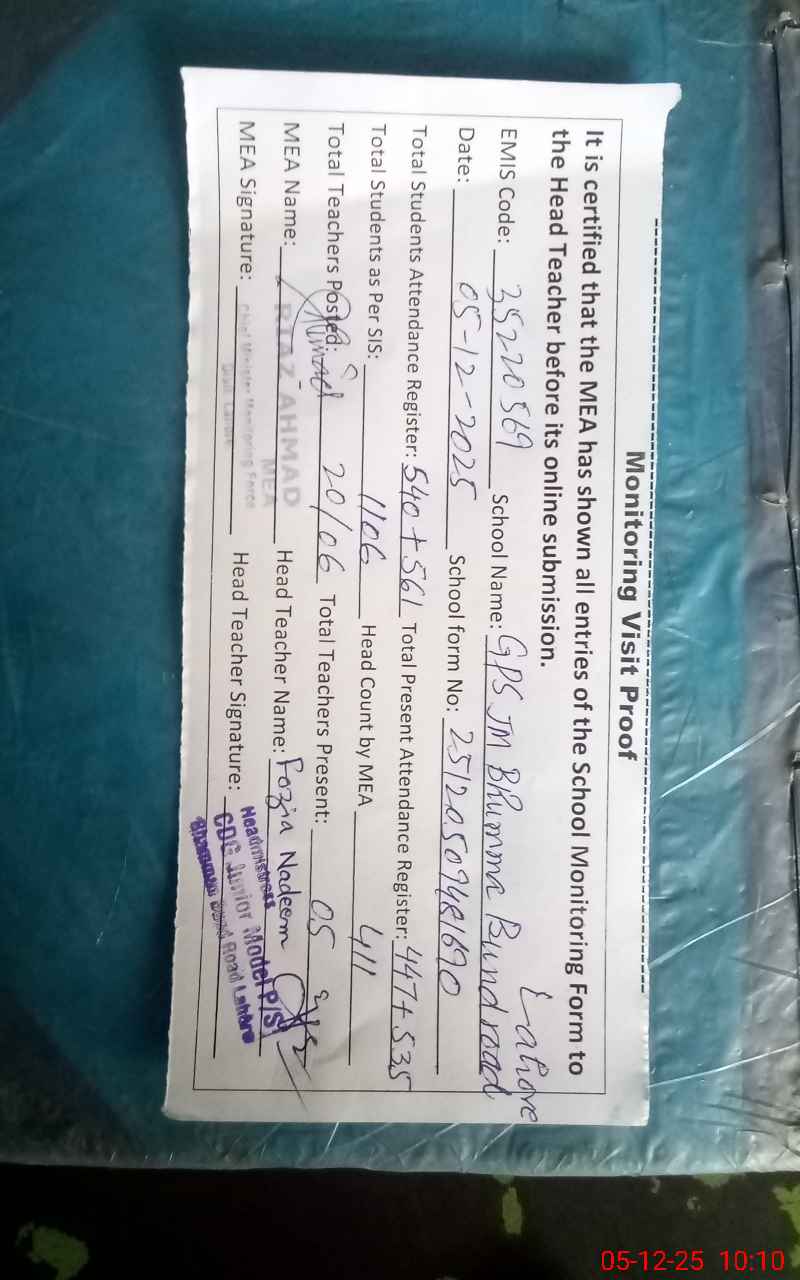 Monitoring Visit Proof
It is certified that the MEA has shown all entries of the School Monitoring Form to
the Head Teacher before its online submission.
EMIS Code: 35220569 School Name: GPS JM Bhumma Bund road Lahore
Date: 05-12-2025 School form No: 25120509481690
Total Students Attendance Register: 540+561 Total Present Attendance Register: 447+535
Total Students as Per SIS: 1106 Head Count by MEA 411
Total Teachers Posted: 20/06 Total Teachers Present: 05
MEA Name: RIAZ AHMAD Head Teacher Name: Fozia Nadeem
MEA
MEA Signature: Chief Minister Monitoring Force Head Teacher Signature: Headmistress
Distt. Lahore
CDG Junior Model P/S
Road Lahore
05-12-25 10:10